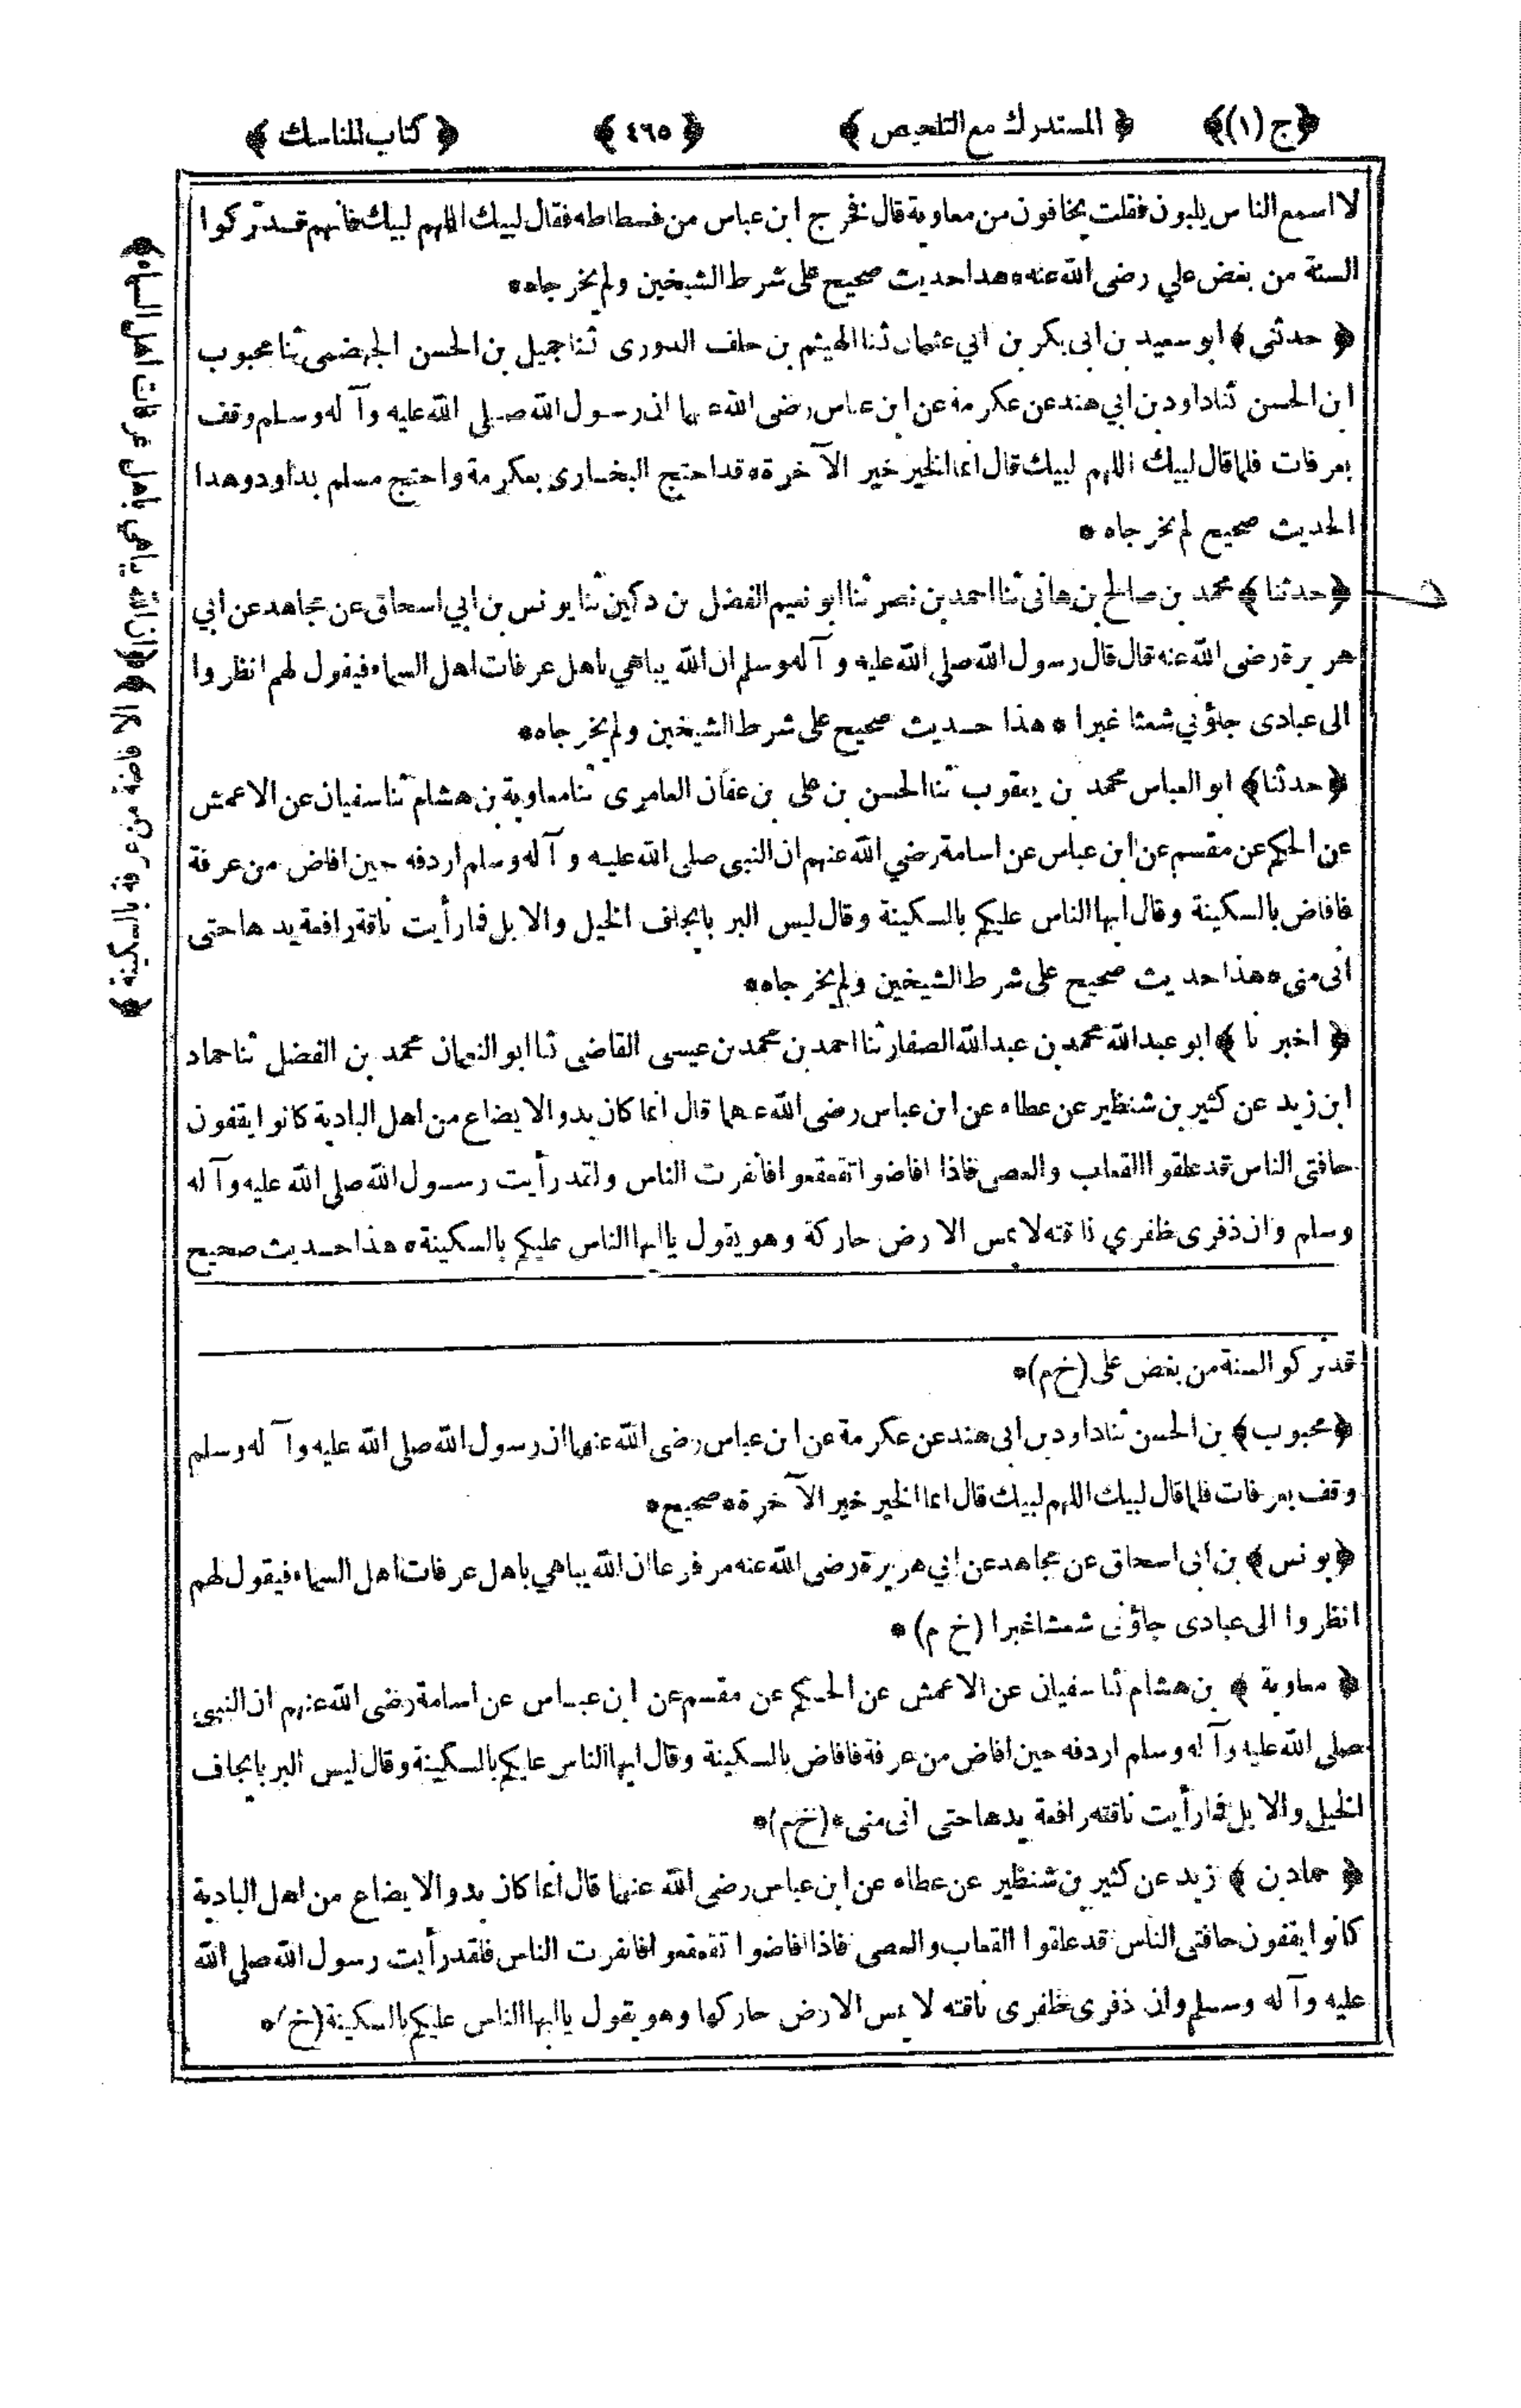 ﴿ج (١)﴾ ﴿ المستدرك مع التلخيص ﴾ ﴿ ٤٦٥ ﴾ ﴿ كتاب المناسك ﴾
لا اسمع الناس يلبون فقلت يخافون من معاوية قال فخرج ابن عباس من فسطاطه فقال لبيك اللهم لبيك فانهم قد تركوا
السنة من بغض علي رضى الله عنه * هذا حديث صحيح على شرط الشيخين ولم يخرجاه *
﴿ حدثنى ﴾ ابو سعيد بن ابى بكر بن ابي عثمان ثنا الهيثم بن خلف الدورى ثنا جميل بن الحسن الجهضمى ثنا محبوب
ابن الحسن ثنا داود بن ابي هند عن عكرمة عن ابن عباس رضى الله عنهما ان رسول الله صلى الله عليه وآله وسلم وقف
بعرفات فلما قال لبيك اللهم لبيك قال انما الخير خير الآخرة * قد احتج البخارى بعكرمة واحتج مسلم بداود وهذا
الحديث صحيح لم يخرجاه *
﴿ حدثنا ﴾ محمد بن صالح بن هانى ثنا احمد بن نصر ثنا ابو نعيم الفضل بن دكين ثنا يونس بن ابي اسحاق عن مجاهد عن ابي
هريرة رضى الله عنه قال قال رسول الله صلى الله عليه وآله وسلم ان الله يباهي باهل عرفات اهل السماء فيقول لهم انظروا
الى عبادى جاؤني شعثا غبرا * هذا حديث صحيح على شرط الشيخين ولم يخرجاه *
﴿ حدثنا ﴾ ابو العباس محمد بن يعقوب ثنا الحسن بن على بن عفان العامرى ثنا معاوية بن هشام ثنا سفيان عن الاعمش
عن الحكم عن مقسم عن ابن عباس عن اسامة رضي الله عنهم ان النبى صلى الله عليه وآله وسلم اردفه حين افاض من عرفة
فافاض بالسكينة وقال ايها الناس عليكم بالسكينة وقال ليس البر بايجاف الخيل والابل فما رأيت ناقة رافعة يدها حتى
اتى منى * هذا حديث صحيح على شرط الشيخين ولم يخرجاه *
﴿ اخبرنا ﴾ ابو عبد الله محمد بن عبد الله الصفار ثنا احمد بن محمد بن عيسى القاضى ثنا ابو النعمان محمد بن الفضل ثنا حماد
ابن زيد عن كثير بن شنظير عن عطاء عن ابن عباس رضى الله عنهما قال انما كان بدو الايضاع من اهل البادية كانوا يقفون
حافتى الناس قد علقوا القعاب والعصى فاذا افاضوا تقعقعوا فانفرت الناس ولقد رأيت رسول الله صلى الله عليه وآله
وسلم وان ذفرى ظفري ناقته لا تمس الارض حاركة وهو يقول يا ايها الناس عليكم بالسكينة * هذا حديث صحيح
قد تركو السنة من بغض على (خ م) *
﴿ محبوب ﴾ بن الحسن ثنا داود بن ابى هند عن عكرمة عن ابن عباس رضى الله عنهما ان رسول الله صلى الله عليه وآله وسلم
وقف بعرفات فلما قال لبيك اللهم لبيك قال انما الخير خير الآخرة * صحيح *
﴿ يونس ﴾ بن ابى اسحاق عن مجاهد عن ابي هريرة رضى الله عنه مرفوعا ان الله يباهي باهل عرفات اهل السماء فيقول لهم
انظروا الى عبادى جاؤنى شعثا غبرا (خ م) *
﴿ معاوية ﴾ بن هشام ثنا سفيان عن الاعمش عن الحكم عن مقسم عن ابن عباس عن اسامة رضى الله عنهم ان النبى
صلى الله عليه وآله وسلم اردفه حين افاض من عرفة فافاض بالسكينة وقال ايها الناس عليكم بالسكينة وقال ليس البر بايجاف
الخيل والابل فما رأيت ناقته رافعة يدها حتى اتى منى * (خ م) *
﴿ حماد بن ﴾ زيد عن كثير بن شنظير عن عطاء عن ابن عباس رضى الله عنهما قال انما كان بدو الايضاع من اهل البادية
كانوا يقفون حافتى الناس قد علقوا القعاب والعصى فاذا افاضوا تقعقعوا فانفرت الناس فلقد رأيت رسول الله صلى الله
عليه وآله وسلم وان ذفرى ظفرى ناقته لا تمس الارض حاركها وهو يقول يا ايها الناس عليكم بالسكينة (خ) *
﴿ ان الله يباهي باهل عرفات اهل السماء ﴾ ﴿ الافاضة من عرفة بالسكينة ﴾